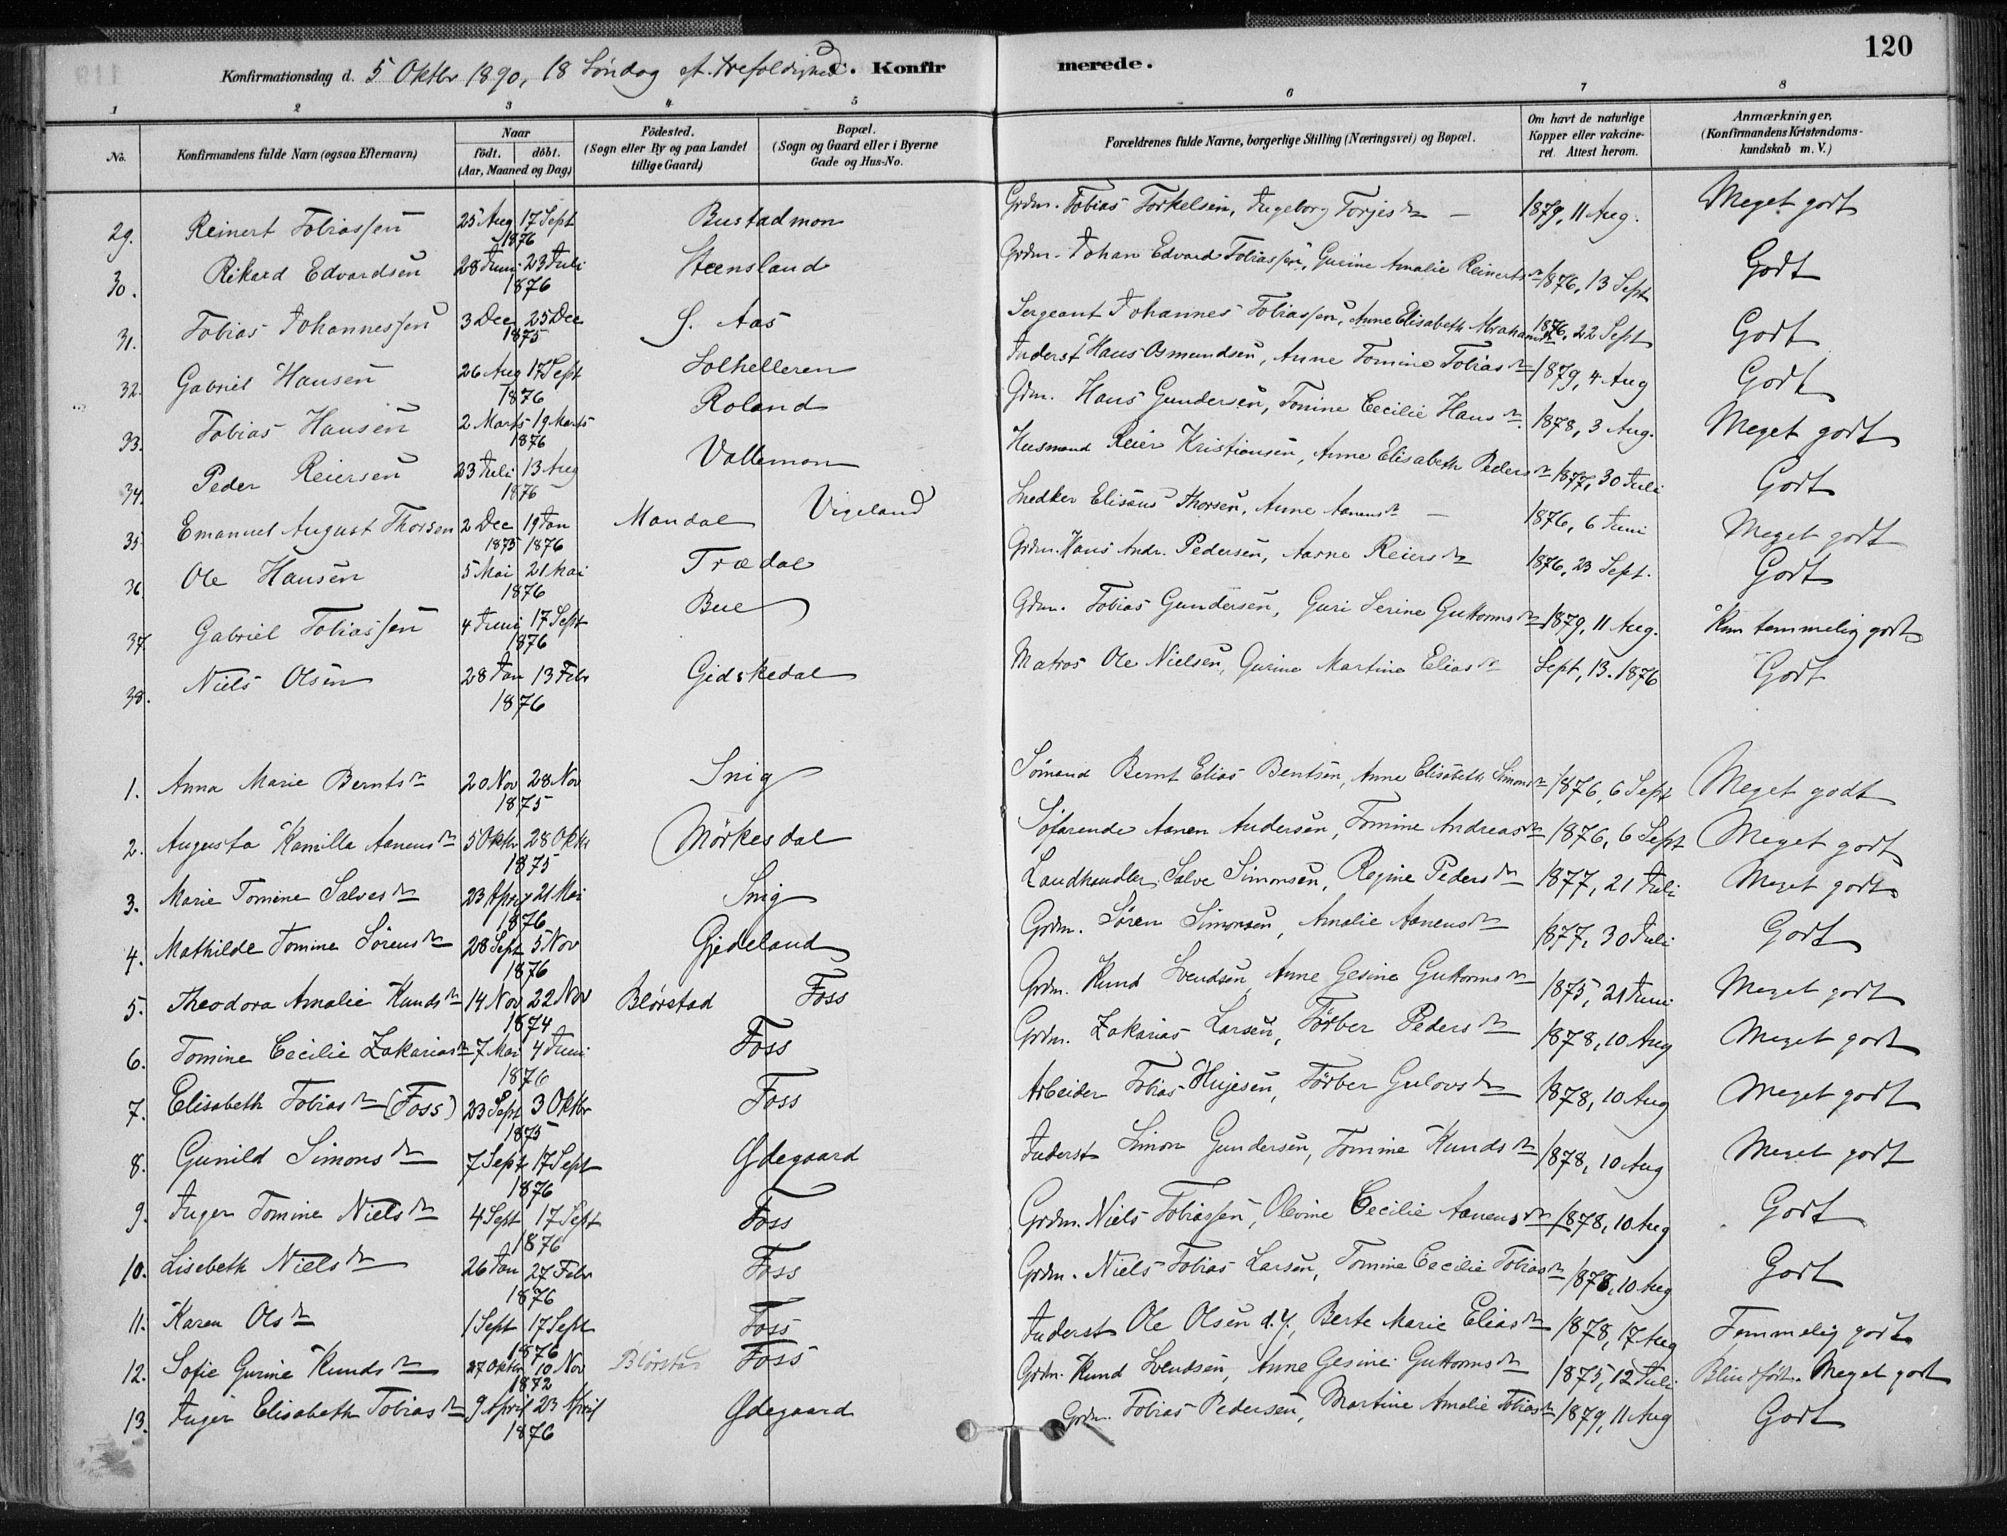 120
Konfirmationsdag d. 5 Oktbr 1890, 18 Söndag eft. Trefoldighed. C. Konfirmerede.
1 2 3 4 5 6 7 8
No. Konfirmandens fulde Navn (ogsaa Efternavn) Naar födt. döbt. (Aar, Maaned og Dag) Födested. (Sogn eller By og paa Landet tillige Gaard) Bopæl. (Sogn og Gaard eller i Byerne Gade og Hus-No. Forældrenes fulde Navne, borgerlige Stilling (Næringsvei) og Bopæl. Om havt de naturlige Kopper eller vakcineret. Attest herom. Anmærkninger. (Konfirmandens Kristendomskundskab m. V.)
29. Reinert Tobiassen 25 Aug 17 Sept 1876 Bustadmon Grdm. Tobias Torkelsen, Ingeborg Torjesdn — 1879, 11 Aug. Meget godt
30. Rikard Edvardsen 28 Juni 23 Juli 1876 Steensland Grdm. Johan Edvard Tobiassen, Gurine Amalie Reinertsdn 1876, 13 Sept Godt
31. Tobias Johannessen 3 Dec 25 Dec 1875 S. Aas Sergeant Johannes Tobiassen, Anne Elisabeth Abrahamsdn 1876, 22 Sept Godt
32. Gabriel Hansen 26 Aug 17 Sept 1876 Solhelleren Inderst Hans Osmundsen, Anne Tomine Tobiasdn 1879, 4 Aug Godt
33. Tobias Hansen 2 Marts 19 Marts 1876 Roland Gdm. Hans Gundersen, Tomine Cecilie Hansdn. 1878, 3 Aug. Meget godt
34. Peder Reiersen 23 Juli 13 Aug 1876 Vallemon Husmand Reier Kristiansen, Anne Elisabeth Pedersdn 1877, 30 Juli Godt
35. Emanuel August Thorsen 2 Dec 1875 19 Jan 1876 Mandal Vigeland Snedker Elisæus Thorsen, Anne Aanensdn — 1876, 6 Juni Meget godt
36. Ole Hansen 5 Mai 21 Mai 1876 Trædal Grdm. Hans Andr. Pedersen, Aasne Reiersdn 1876, 23 Sept. Godt
37. Gabriel Tobiassen 4 Juni 17 Sept 1876 Bue Gdm. Tobias Gundersen, Guri Serine Guttormsdn 1879, 11 Aug. Kun temmelig godt
38. Niels Olsen 28 Jan 13 Febr 1876 Gidskedal Matros Ole Nielsen, Gurine Martine Eliasdn Sept, 13. 1876 Godt
1. Anna Marie Berntsdn 20 Nov 28 Nov 1875 Snig Sömand Bernt Elias Bentsen, Anne Elisabeth Simonsdn 1876, 6 Sept Meget godt
2. Augusta Kamilla Aanensdn 5 Oktbr 28 Oktbr 1875 Mörkesdal Söfarende Aanen Andersen, Tomine Andreasdn 1876, 6 Sept Meget godt
3. Marie Tomine Salvesdn 23 April 21 Mai 1876 Snig Landhandler Salve Simonsen, Regine Pedersdn 1877, 21 Juli Meget godt
4. Mathilde Tomine Sörensdn 28 Sept 5 Nov 1876 Gjideland Grdm. Sören Simonsen, Amalie Aanensdn 1877, 30 Juli Godt
5. Theodora Amalie Knudsdn 14 Nov 22 Nov 1874 Blörstad Foss Grdm. Knud Svendsen, Anne Gesine Guttormsdn 1875, 21 Juni Meget godt
6. Tomine Cecilie Zakariasdn 7 Mai 4 Juni 1876 Foss Grdm. Zakarias Larsen, Törber Pedersdn 1878, 10 Aug Meget godt
7. Elisabeth Tobiasdn (Foss) 23 Sept 3 Oktbr 1875 Foss Arbeider Tobias Hujesen, Törber Gulovsdn 1878, 10 Aug Meget godt
8. Gunild Simonsdn 7 Sept 17 Sept 1876 Ødegaard Inderst Simon Gundersen, Tomine Knudsdn 1878, 10 Aug Meget godt
9. Inger Tomine Nielsdn 4 Sept 17 Sept 1876 Foss Grdm. Niels Tobiassen, Olevine Cecilie Aanensdn 1878, 10 Aug Godt
10. Lisebeth Nielsdn 26 Jan 27 Febr 1876 Foss Grdm. Niels Tobias Larsen, Tomine Cecilie Tobiasdn 1878, 10 Aug Godt
11. Karen Olsdn 1 Sept 17 Sept 1876 Foss Inderst Ole Olsen d.y., Berte Marie Eliasdn 1878, 17 Aug Temmelig godt
12. Sofie Gurine Knudsdn 27 Oktbr 10 Nov 1872 Blörstad Foss Grdm. Knud Svendsen, Anne Gesine Guttormsdn 1875, 12 Juli Blindfödt. Meget godt
13. Inger Elisabeth Tobiasdn 9 April 23 April 1876 Ødegaard Grdm. Tobias Pedersen, Martine Amalie Tobiasdn 1879, 11 Aug Godt